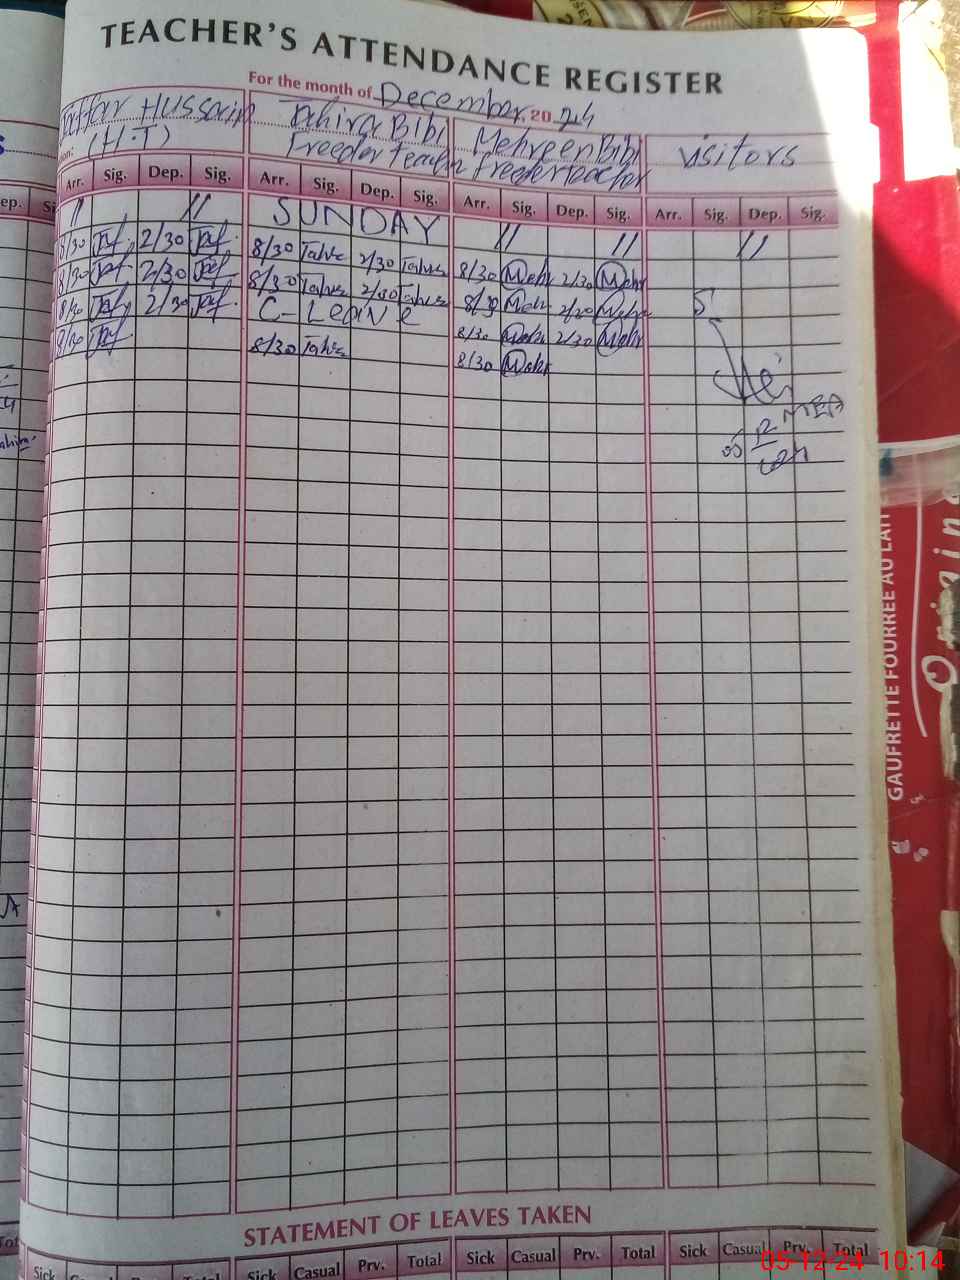 TEACHER'S ATTENDANCE REGISTER
For the month of December, 20 24
Jaffar Hussain Tahira Bibi Mehreen Bibi visitors
(H.T) Freeder Teach Freeder teacher
Arr. Sig. Dep. Sig. Arr. Sig. Dep. Sig. Arr. Sig. Dep. Sig. Arr. Sig. Dep. Sig.
ep.
// // SUNDAY // // //
8/30 Jaf 2/30 Jaf 8/30 Tahir 2/30 Tahir 8/30 Mehr 2/30 Mehr
8/30 Jaf 2/30 Jaf 8/30 Tahir 2/30 Tahir 8/30 Mehr 2/30 Mehr
8/30 Jaf 2/30 Jaf C-Leave 8/30 Mehr 2/30 Mehr
8/30 Jaf 8/30 Tahir 8/30 Mehr
MEA
05
12
GAUFRETTE FOURRÉE AU LAIT
Origine
STATEMENT OF LEAVES TAKEN
Sick Casual Prv. Total Sick Casual Prv. Total Sick Casual Prv. Total
05-12-24 10:14